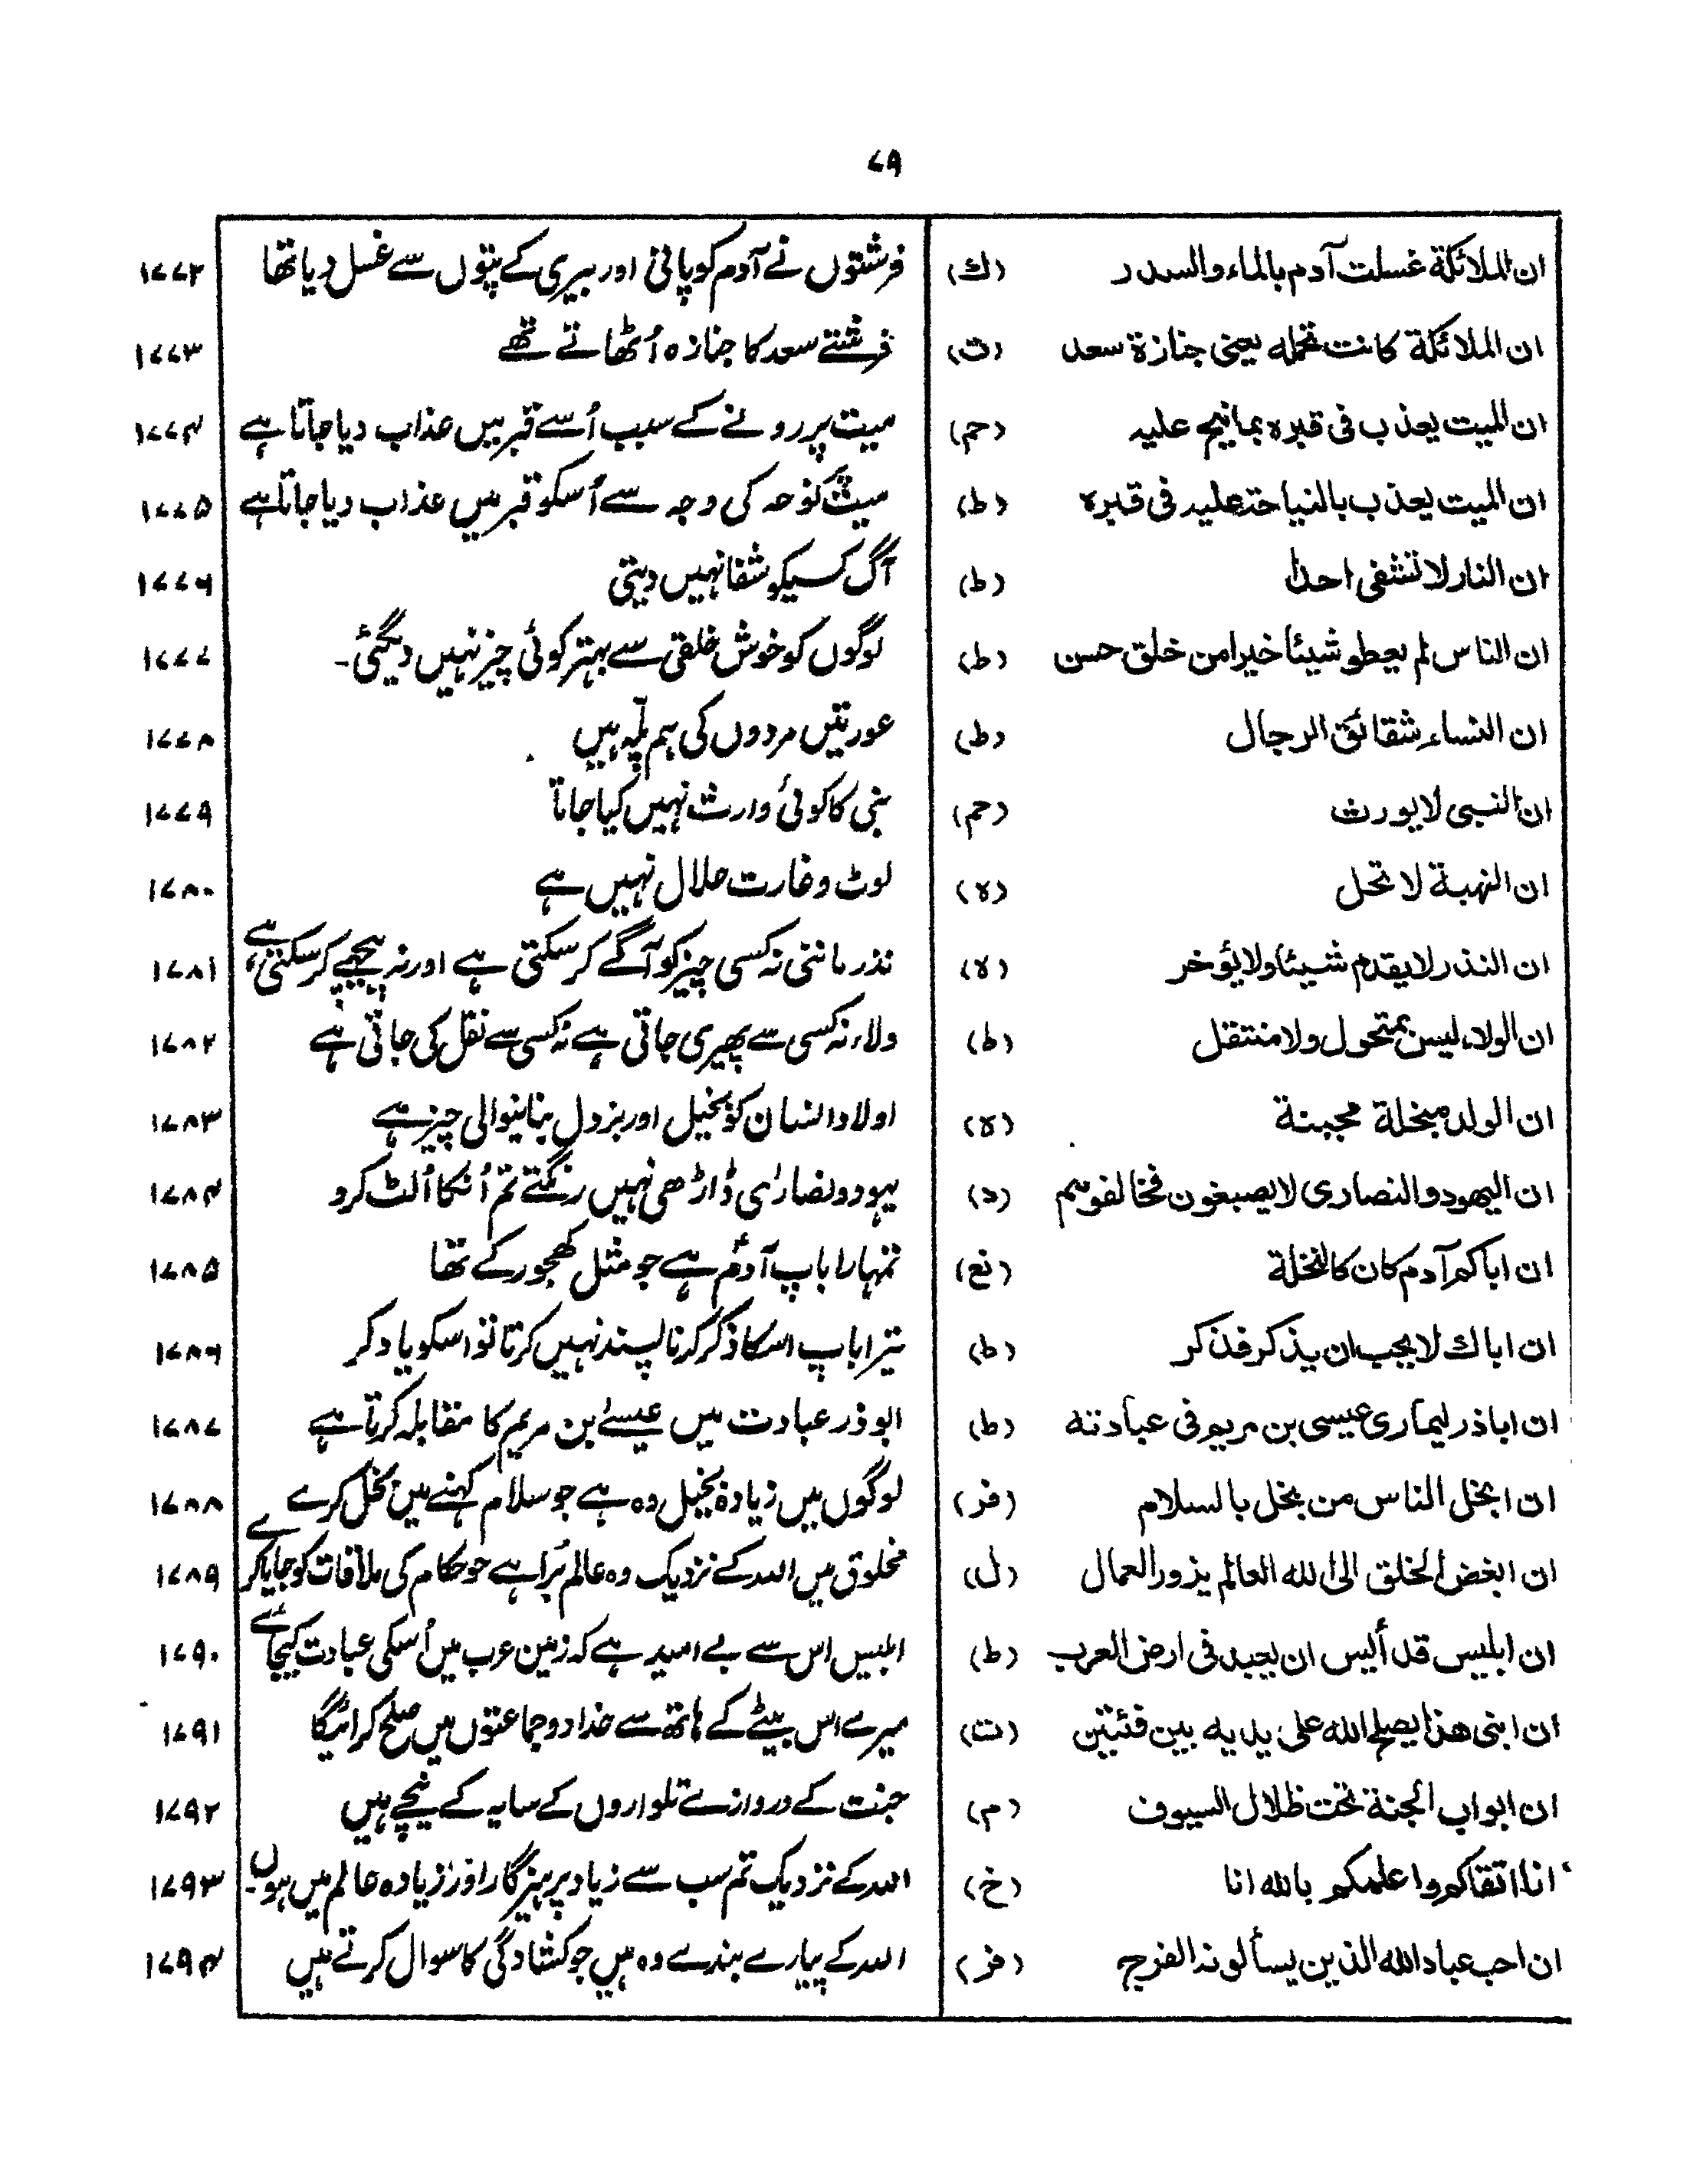 ۷۹
ان الملائكة غسلت آدم بالماء والسدر (ك) فرشتوں نے آدم کو پانی اور بیری کے پتوں سے غسل دیا تھا ۱۷۷۲
ان الملائكة كانت تحمله يعنى جنازة سعد (ت) فرشتے سعد کا جنازہ اُٹھاتے تھے ۱۷۷۳
ان الميت يعذب فى قبره بما نيح عليه (حم) میت پر رونے کے سبب اُسے قبر میں عذاب دیا جاتا ہے ۱۷۷۴
ان الميت يعذب بالنياحة عليه فى قبره (ط) میت پر نوحہ کی وجہ سے اُسکو قبر میں عذاب دیا جاتا ہے ۱۷۷۵
ان النار لا تشفى احدا (ط) آگ کسیکو شفا نہیں دیتی ۱۷۷۶
ان الناس لم يعطو شيئا خيرا من خلق حسن (ط) لوگوں کو خوش خلقی سے بہتر کوئی چیز نہیں دیگئی۔ ۱۷۷۷
ان النساء شقائق الرجال (ط) عورتیں مردوں کی ہم پلّہ ہیں ۱۷۷۸
ان النبى لا يورث (حم) نبی کا کوئی وارث نہیں کیا جاتا ۱۷۷۹
ان النهبة لا تحل (ه) لوٹ و غارت حلال نہیں ہے ۱۷۸۰
ان النذر لا يقدم شيئا ولا يؤخر (ه) نذر ماننی نہ کسی چیز کو آگے کر سکتی ہے اور نہ پیچھے کر سکتی ہے ۱۷۸۱
ان الولاء ليس بمتحول ولا منتقل (ط) ولاء نہ کسی سے پھیری جاتی ہے نہ کسی سے نقل کی جاتی ہے ۱۷۸۲
ان الولد مبخلة مجبنة (ه) اولاد انسان کو بخیل اور بزدل بنانیوالی چیز ہے ۱۷۸۳
ان اليهود والنصارى لا يصبغون فخالفوهم (د) یہود و نصاریٰ ڈاڑھی نہیں رنگتے تم اُنکا اُلٹ کرو ۱۷۸۴
ان اباكم آدم كان كالنخلة (نع) تمہارا باپ آدمؑ ہے جو مثل کھجور کے تھا ۱۷۸۵
ان اباك لا يحب ان يذكر فذكر (ط) تیرا باپ اسکا ذکر کرنا پسند نہیں کرتا تو اسکو یاد کر ۱۷۸۶
ان اباذر ليمارى عيسى بن مريم فى عبادته (ط) ابوذر عبادت میں عیسےٰ بن مریم کا مقابلہ کرتا ہے ۱۷۸۷
ان ابخل الناس من بخل بالسلام (فر) لوگوں میں زیادہ بخیل وہ ہے جو سلام کہنے میں بخل کرے ۱۷۸۸
ان ابغض الخلق الى الله العالم يزور العمال (ل) مخلوق میں اللہ کے نزدیک وہ عالم بُرا ہے جو حکام کی ملاقات کو جایا کرے ۱۷۸۹
ان ابليس قد أليس ان يعبد فى ارض العرب (ط) ابلیس اس سے بے امید ہے کہ زمین عرب میں اُسکی عبادت کیجائے ۱۷۹۰
ان ابنى هذا يصلح الله على يديه بين فئتين (ت) میرے اس بیٹے کے ہاتھ سے خدا دو جماعتوں میں صلح کرائیگا ۱۷۹۱
ان ابواب الجنة تحت ظلال السيوف (م) جنت کے دروازے تلواروں کے سایہ کے نیچے ہیں ۱۷۹۲
ان اتقاكم واعلمكم بالله انا (خ) اللہ کے نزدیک تم سب سے زیادہ پرہیزگار اور زیادہ عالم میں ہوں ۱۷۹۳
ان احب عباد الله الذين يسألونه الفرج (فر) اللہ کے پیارے بندے وہ ہیں جو کشادگی کا سوال کرتے ہیں ۱۷۹۴